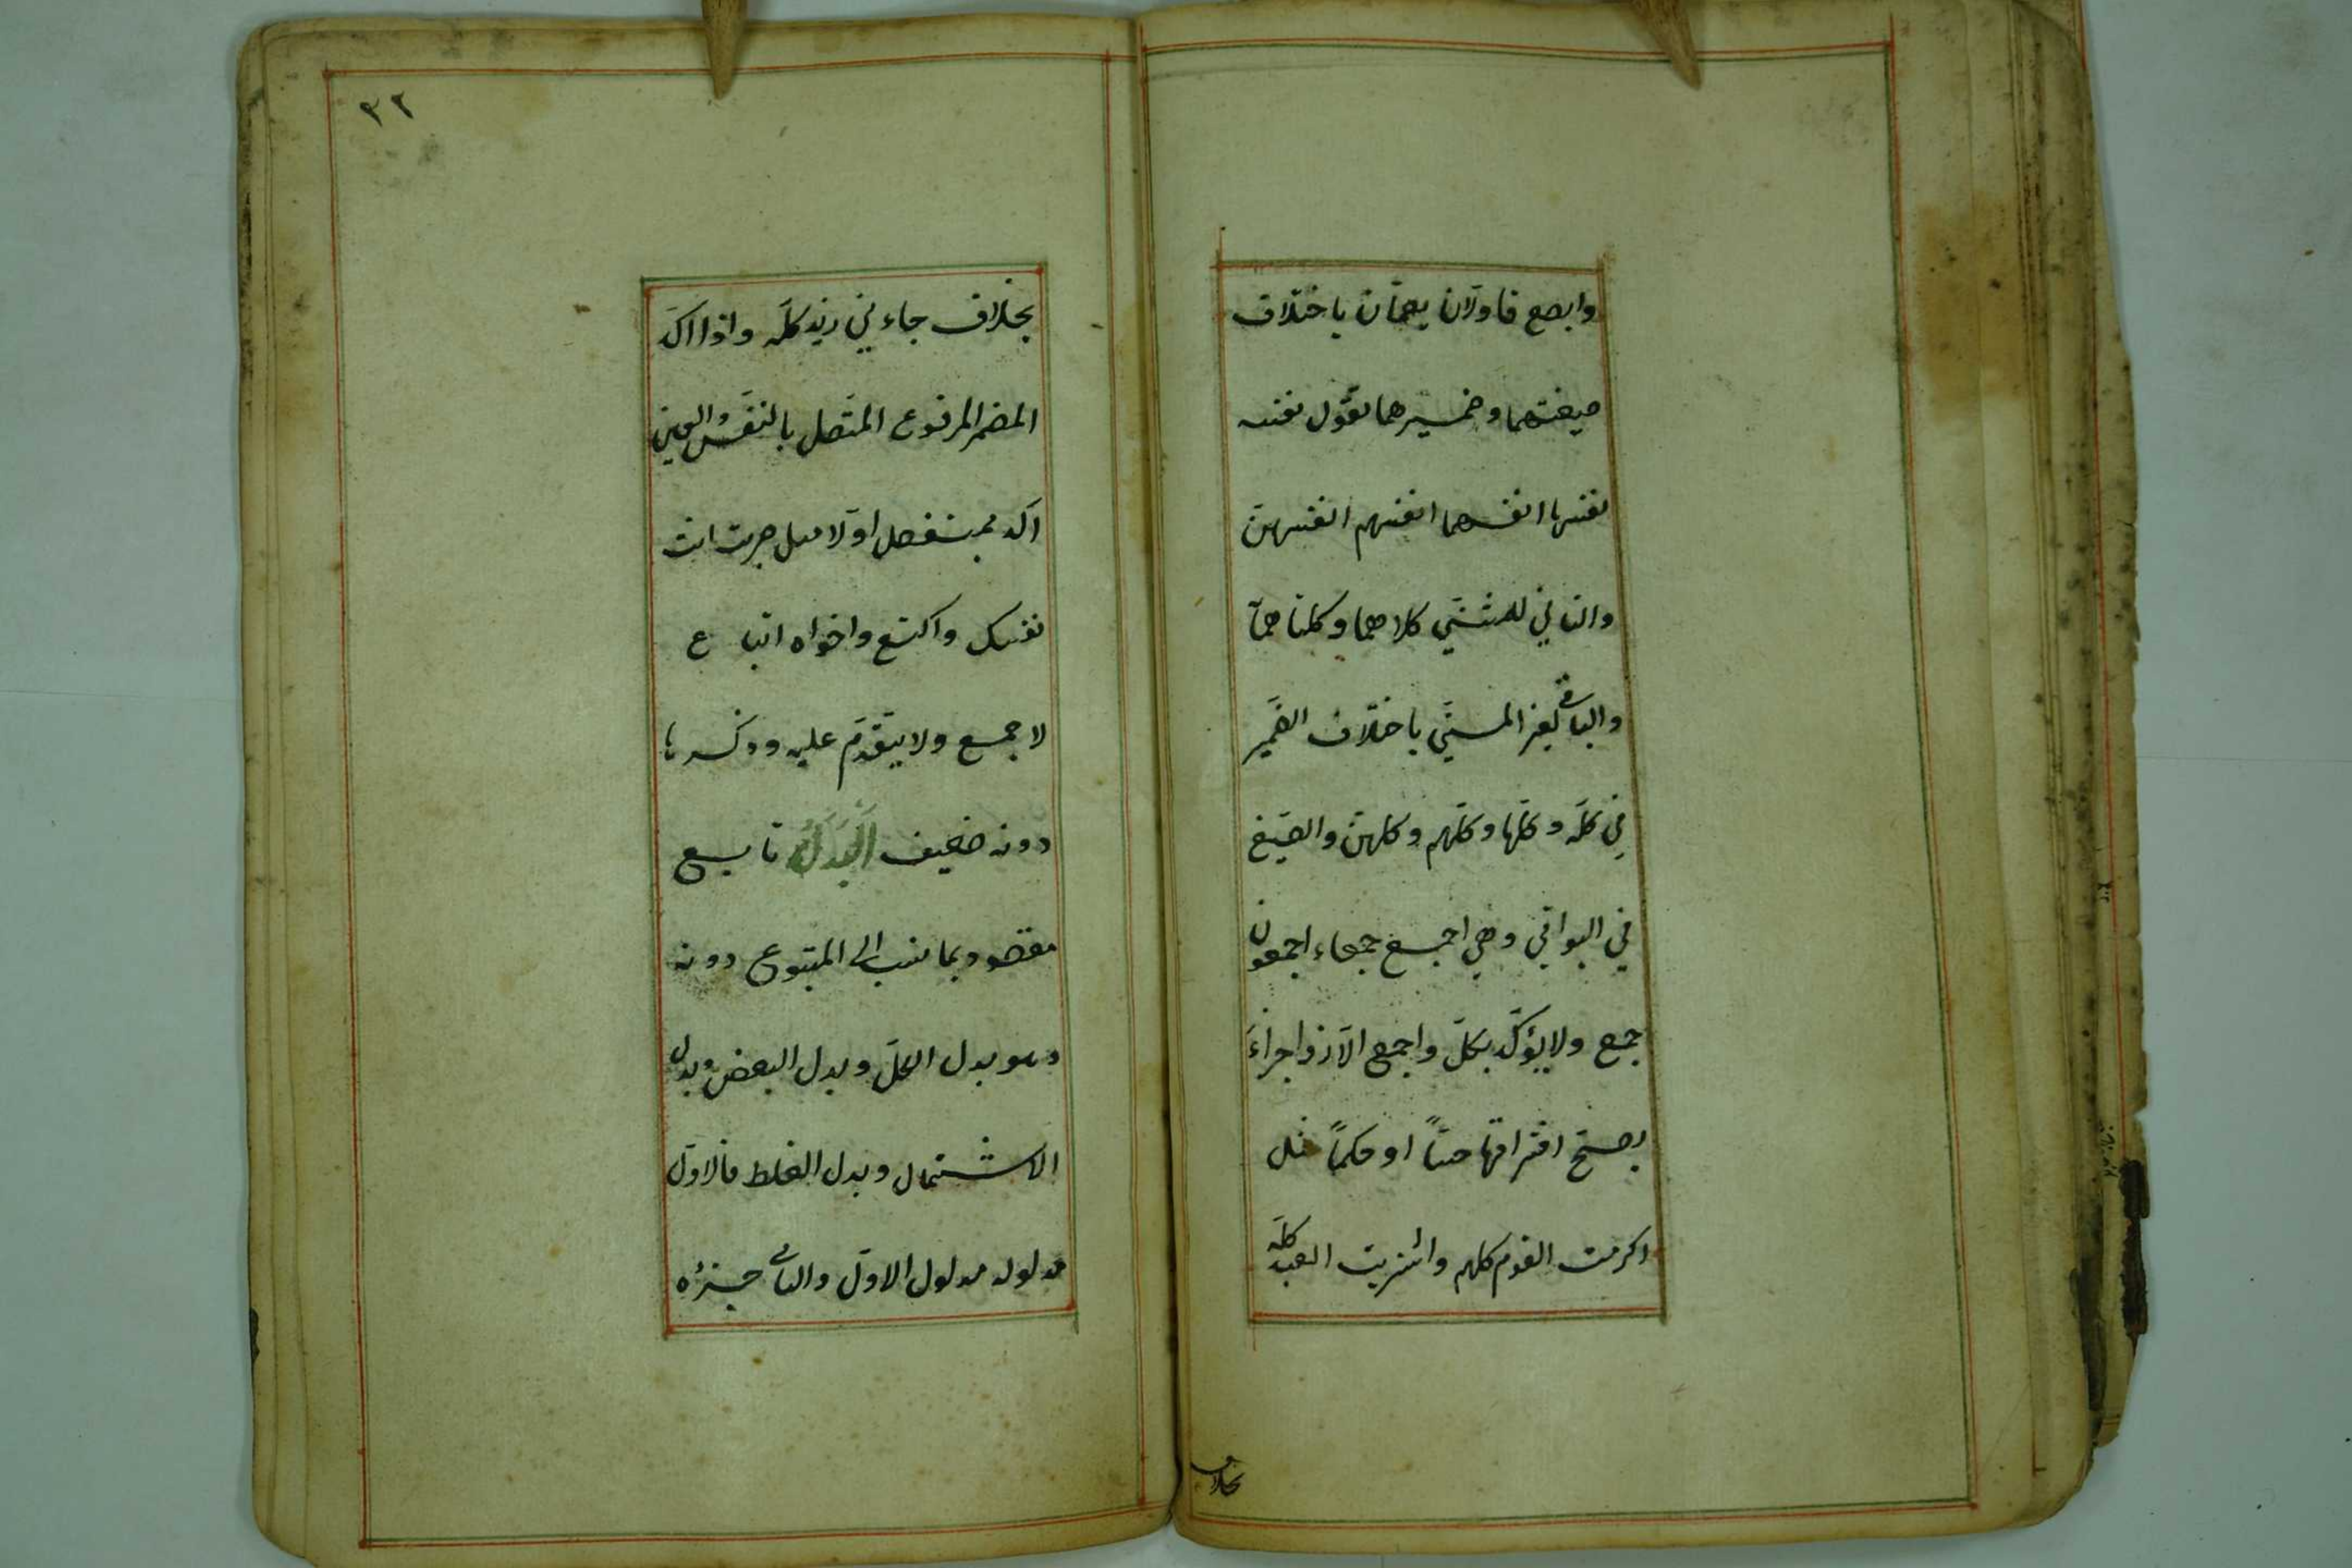 وابصع فاولان يعمّان باختلاف
صيغتهما وضميرهما تقول نفسه
نفسها انفسهما انفسهم انفسهنّ
والثاني للمثنّي كلاهما وكلتاهما
والباقي لغير المثنّي باختلاف الضّمير
في كلّه وكلّها وكلّهم وكلهنّ والصّيغ
في البواقي وهي اجمع جمعاء اجمعون
جمع ولا يؤكّد بكلّ واجمع الّا ذو اجزاءَ
يصحّ افتراقها حسّاً او حكماً مثل
اكرمت القوم كلهم واشتريت العبد كلّه
بخلاف
٣٢
بخلاف جاءني زيد كلّه واذا اكّد
المضمر المرفوع المتّصل بالنّفس والعين
اكد بمنفصل اوّلا مثل ضربت انت
نفسك واكتع واخواه اتباع
لاجمع ولا يتقدّم عليه وذكرها
دونه ضعيف اَلْبَدَلُ تابع
مقصود بما نسب الى المتبوع دونه
وهو بدل الكلّ وبدل البعض وبدل
الاشتمال وبدل الغلط فالاوّل
مدلوله مدلول الاوّل والثاني جزؤه